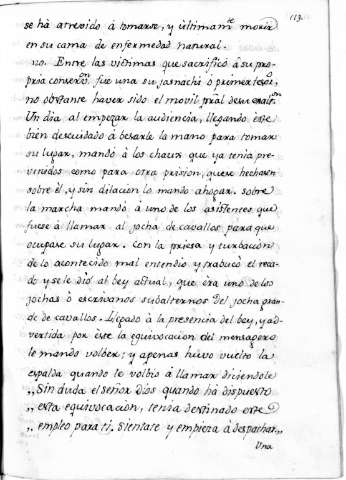 113.
se hà atrevido à tomarse, y ultimamte morir
en su cama de enfermedad natural.
no. Entre las victimas que sacrificó à su pro-
pria conservon. fue una su jasnachi ò primer tesoro,
no obstante haver sido el movil pral de su exalton
Un dia al empezar la audiencia, llegando este
bien descuidado à besarle la mano para tomar
su lugar, mandó à los chaux que ya tenia pre-
venidos como para otra prision, que se hechasen
sobre él, y sin dilacion lo mando ahogar. sobre
la marcha mandó à uno de los asistentes que
fuese à llamar al jocha de cavallos para que
ocupase su lugar. Con la priesa y turbacion
de lo acontecido mal entendio y trabucó el reca-
do y se le dió al bey actual, que era uno de los
jochas ò escrivanos subalternos del jocha gran-
de de cavallos. Llegado à la presencia del bey, y ad-
vertida por éste la equivocacion del mensagero
le mando volber; y apenas huvo vuelto la
espalda quando le volbió à llamar diciendole
„Sin duda el señor Dios quando hà dispuesto
„esta equivocacion, tenia destinado este
„empleo para ti. Sientate y empieza à despachar„
Una